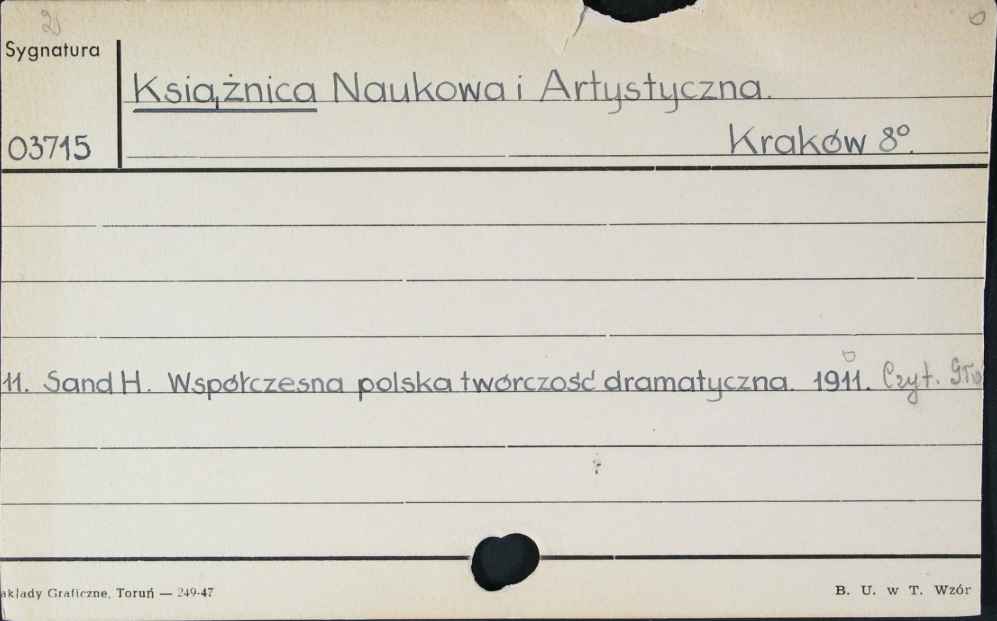 Sygnatura
Książnica Naukowa i Artystyczna.
03715
Kraków 8°.
11. Sand H. Współczesna polska twórczość dramatyczna. 1911. Czyt.
akłady Graficzne, Toruń — 249-47
B. U. w T. Wzór